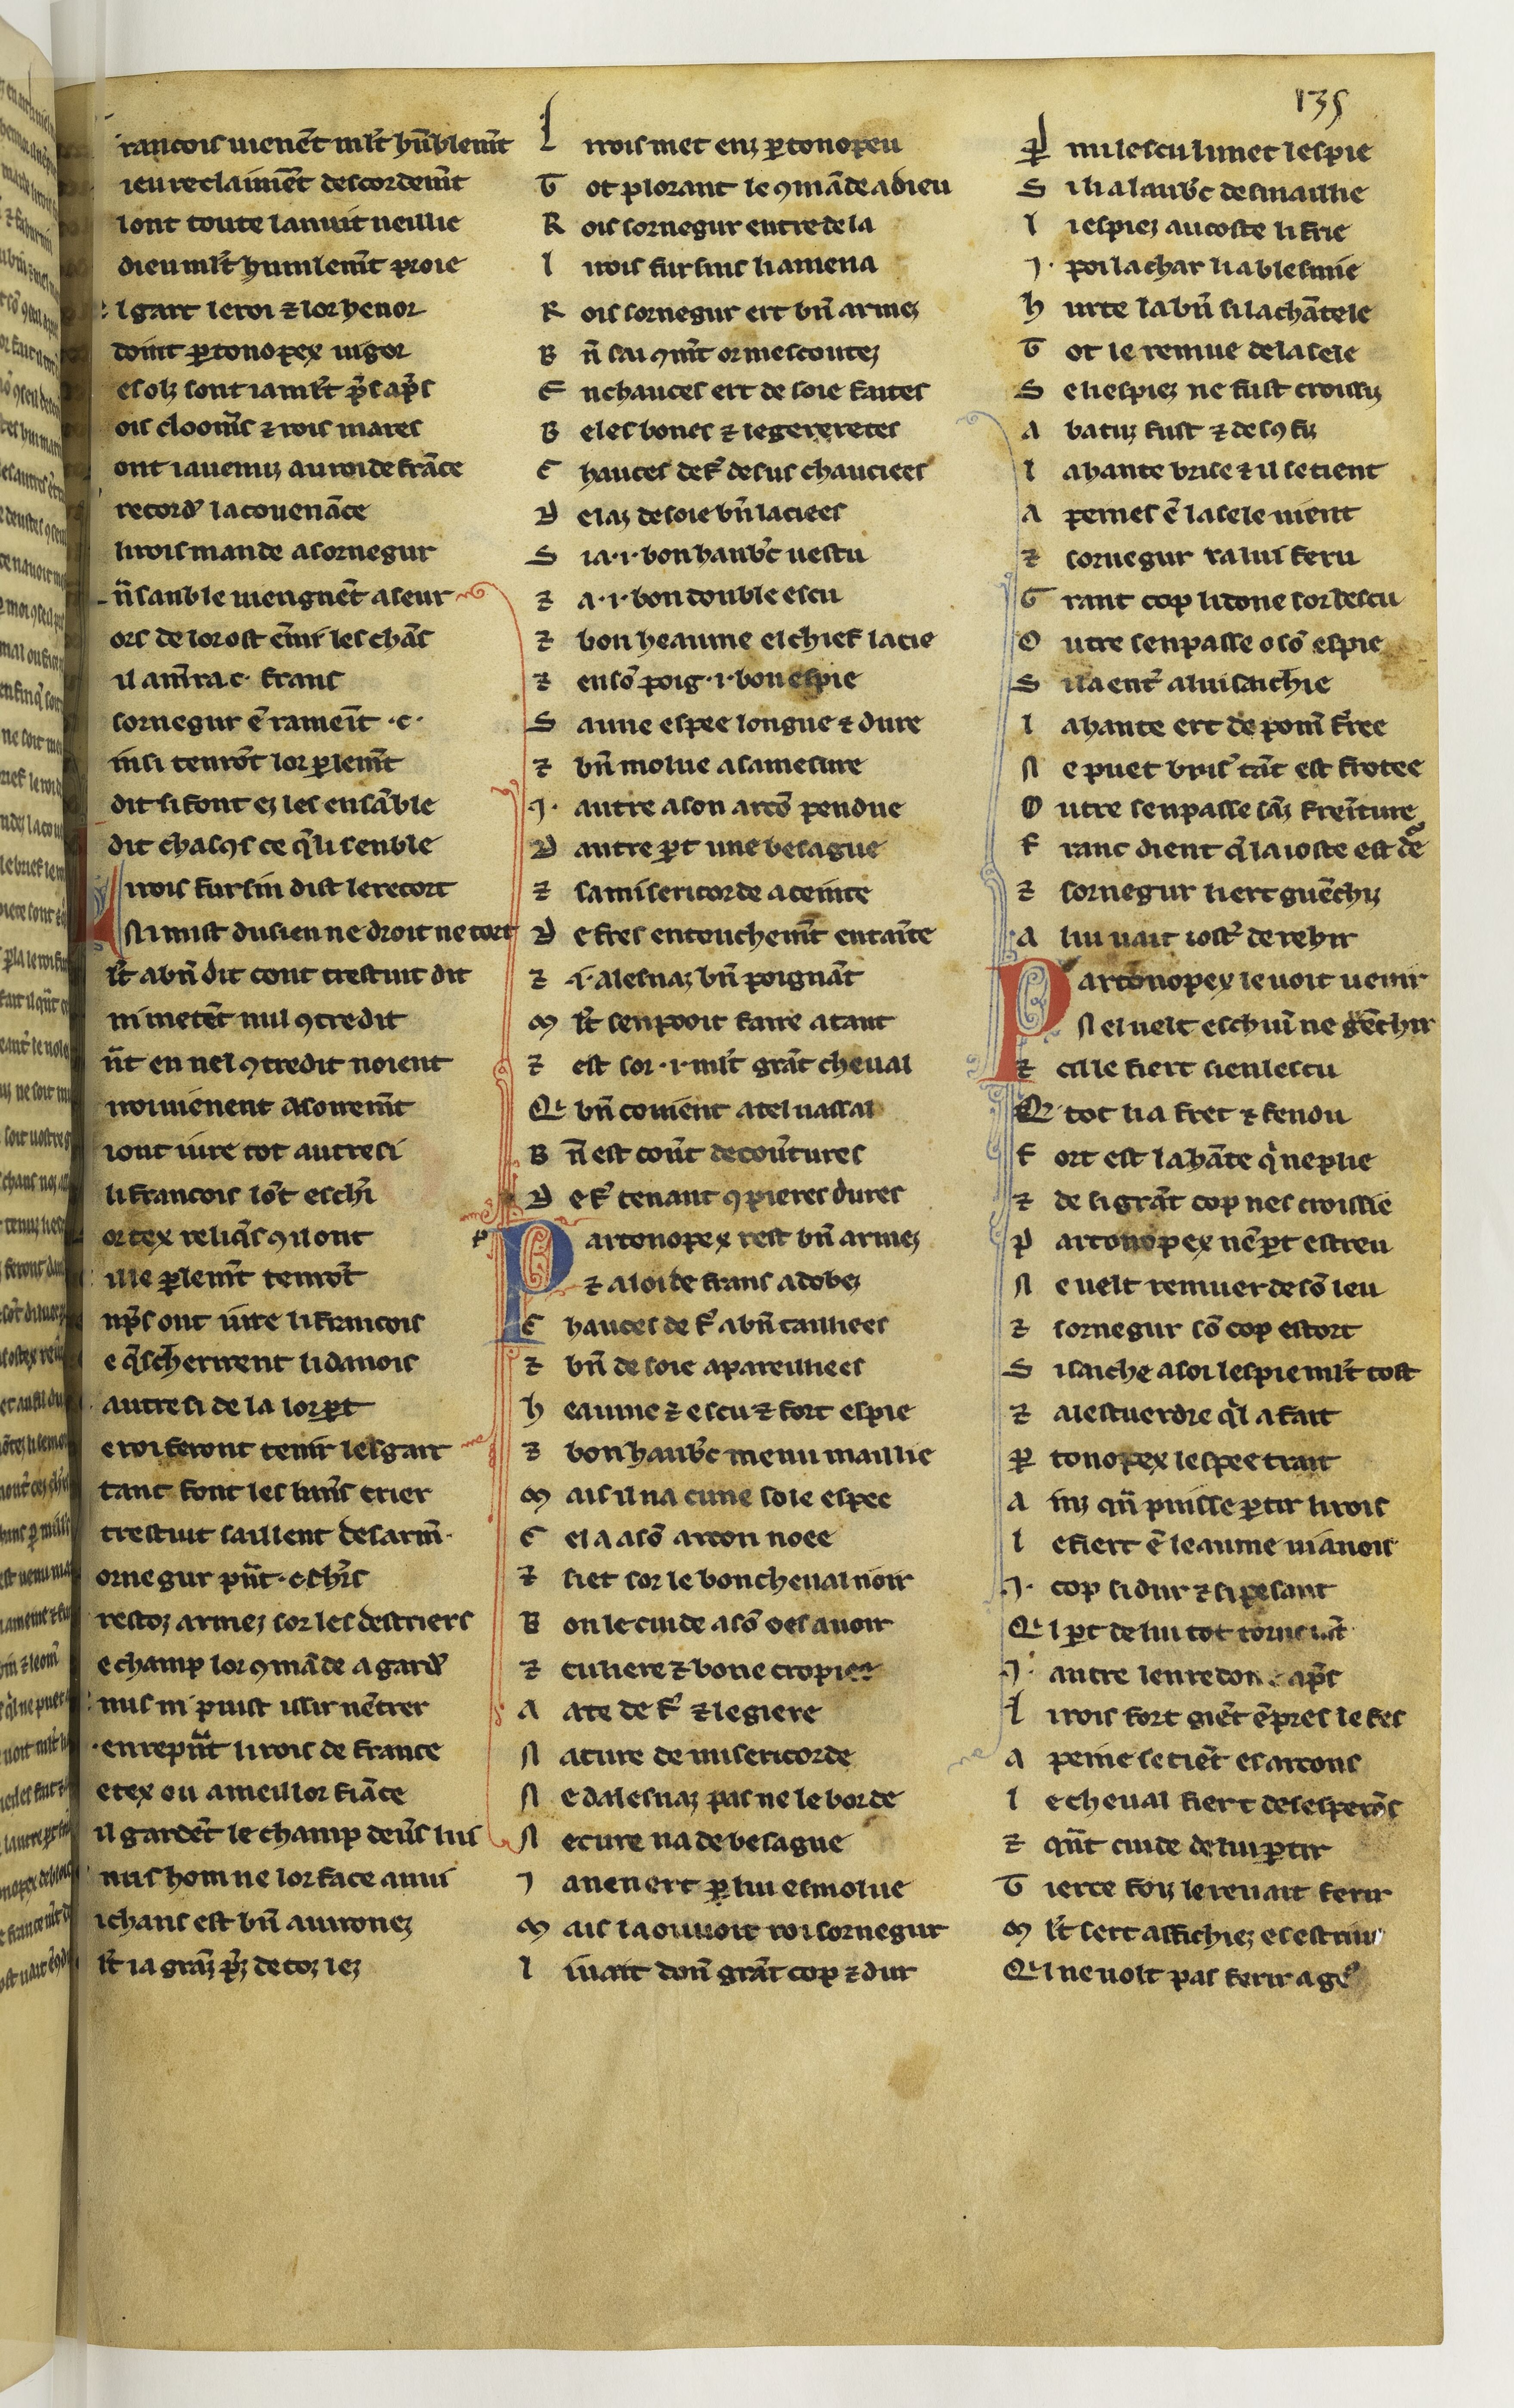 135
rancois uienēt ml̃t hūblemēt
ieu reclaimēt descordemēt
lont toute la nuit ueillie
dieu ml̃t humlemēt proie
l gart le roi ⁊ lor henor
doint ꝑtonopex uigor
esolz sont ia ml̃t p̃s ap̃s
ois cloom̃s ⁊ rois mares
ont ia uenuz au roi de frāce
record̾ la couenāce
li rois mande a sornegur
ñ sanble uiengnēt aseur
ors de lor ost ēmi les chās
il am̃ra .c. frans
sornegur ē rameīt .c.
insi tenrōt lor ꝑlemt̃
dit si font ez les ensāble
dit chasꝯs ce q̃ li senble
i rois fursin dist le recort
N i mist du sien ne droit ne tort
l̃t a bñ dit cont trestuit dit
ni metēt nul ꝯtredit
ñt en nel ꝯtredit noient
i roi uienent a sorremt̃
i ont iure tot autresi
li francois sōt eschĩ
or tex reliq̃s ꝯ il ont
ille ꝑlemt̃ tenrōt
np̃s ont iure li francois
e q̃ scherirent li danois
autresi de la lor ꝑt
e roi feront tenir lesgart
tant font les huñs crier
trestuit saillent desarm̃.
ornegur pñt .c. chr̃s
res toz armez sor les destriers
e champ lor ꝯmāde a gard̾
nus ni puist issir nētrer
.c. en repñt li rois de france
e tex ou a meillor fiāce
il gardēt le champ deũs lui
nus hom ne lor face anui
i chans est bñ auironez
l̃t i a grãz p̃z de toz lez
L i rois met enz ꝑtonopeu
T ot plorant le ꝯmāde a dieu
R ois sornegur entre de la
l i rois fursins li amena
R ois sornegur ert bñ armez
B ñ sai ꝯmt̃ or mescoutez
E nchauces ert de soie faites
B eles bones ⁊ legereretes
C hauces de f̾ desus chauciees
D e laz de soie bñ laciees
S i a .i. bon haub̾c uestu
⁊ a .i. bon double escu
⁊ bon heaume el chief lacie
⁊ en sō poig .i. bon espie
S aune espee longue ⁊ dure
⁊ bñ molue a sa mesure
J. autre a son arcō pendue
D autre ꝑt une besague
⁊ sa misericorde a ceinte
D e fres entouchemt̃ entaīte
⁊ .i. alesnaz bñ poignāt
M l̃t sen pooit faire a tant
⁊ est sor .i. ml̃t grāt cheual
Q bñ couient a tel uassal
B ñ est coũt de coũtures
D e f̾ tenant ꝯ pieres dures
P artonopex rest bñ armez
⁊ a loi de frans adobez
C hauces de f̾ a bñ taillees
⁊ bñ de soie apareillees
H eaume ⁊ escu ⁊ fort espie
⁊ bon haub̾c menu maillie
M ais il na cune sole espee
C el a a sō arcon noee
⁊ siet sor le bon cheual noir
B on le cuide a sō oes auoir
⁊ culiere ⁊ bone cropiere
A ate de f̾ ⁊ legiere
N a cure de misericorde
N e dalesnaz pas ne le borde
N e cure na de besague
J a nen ert ꝑ lui esmolue
M ais la ou uoit roi sornegur
l i uait doñ grāt cop ⁊ dur
ꝑ mi lescu li met lespie
S i li a laub̾c desmaillie
l i espiez au coste li frie
J. poi la char li a blesmie
H urte la bñ si la chātele
T ot le remue de la sele
S e li espiez ne fust croissuz
A batuz fust ⁊ desꝯfiz
l a hante brise ⁊ il se tient
A peines ē la sele uient
⁊ sornegur ra lui feru
G rant cop li done sor lescu
O utre sen passe o sō espie
S i la ent̾ a lui saichie
l a hante ert de pom̃ f̾ree
N e puet bris̾ tāt est frotee
O utre sen passe sāz freīture
F ranc dient q̃ la ioste est d̾e
⁊ sornegur siert guēchiz
A lui uait iost̾ de rehir
P artonopex le uoit uenir
N el uelt eschiuĩ ne gēchir
⁊ cil le fiert si en lescu
Q tot li a fret ⁊ fendu
F ort est la hāte q̃ ne plie
⁊ de si grāt cop nes croissie
P artonopex nē ꝑt estreu
N e uelt remuer de sō leu
⁊ sornegur sō cop estort
S i saiche a soi lespie ml̃t tost
⁊ a lestuerdre q̃l a fait
ꝑ tonopex lespee trait
A inz qñ puisse ꝑtir li rois
l e fiert ē leaume uianois
J. cop si dur ⁊ si pesant
Q l ꝑt de lui tot
J. autre len redone ap̃s
l i rois fort giēt ēpres le fes
A peine se tiēt es arcons
l e cheual fiert des esperōs
⁊ qñt cuide de lui ꝑtir
T ierce foiz le reuait ferir
M l̃t sert affichiez es estriu
Q l ne uolt pas ferir a